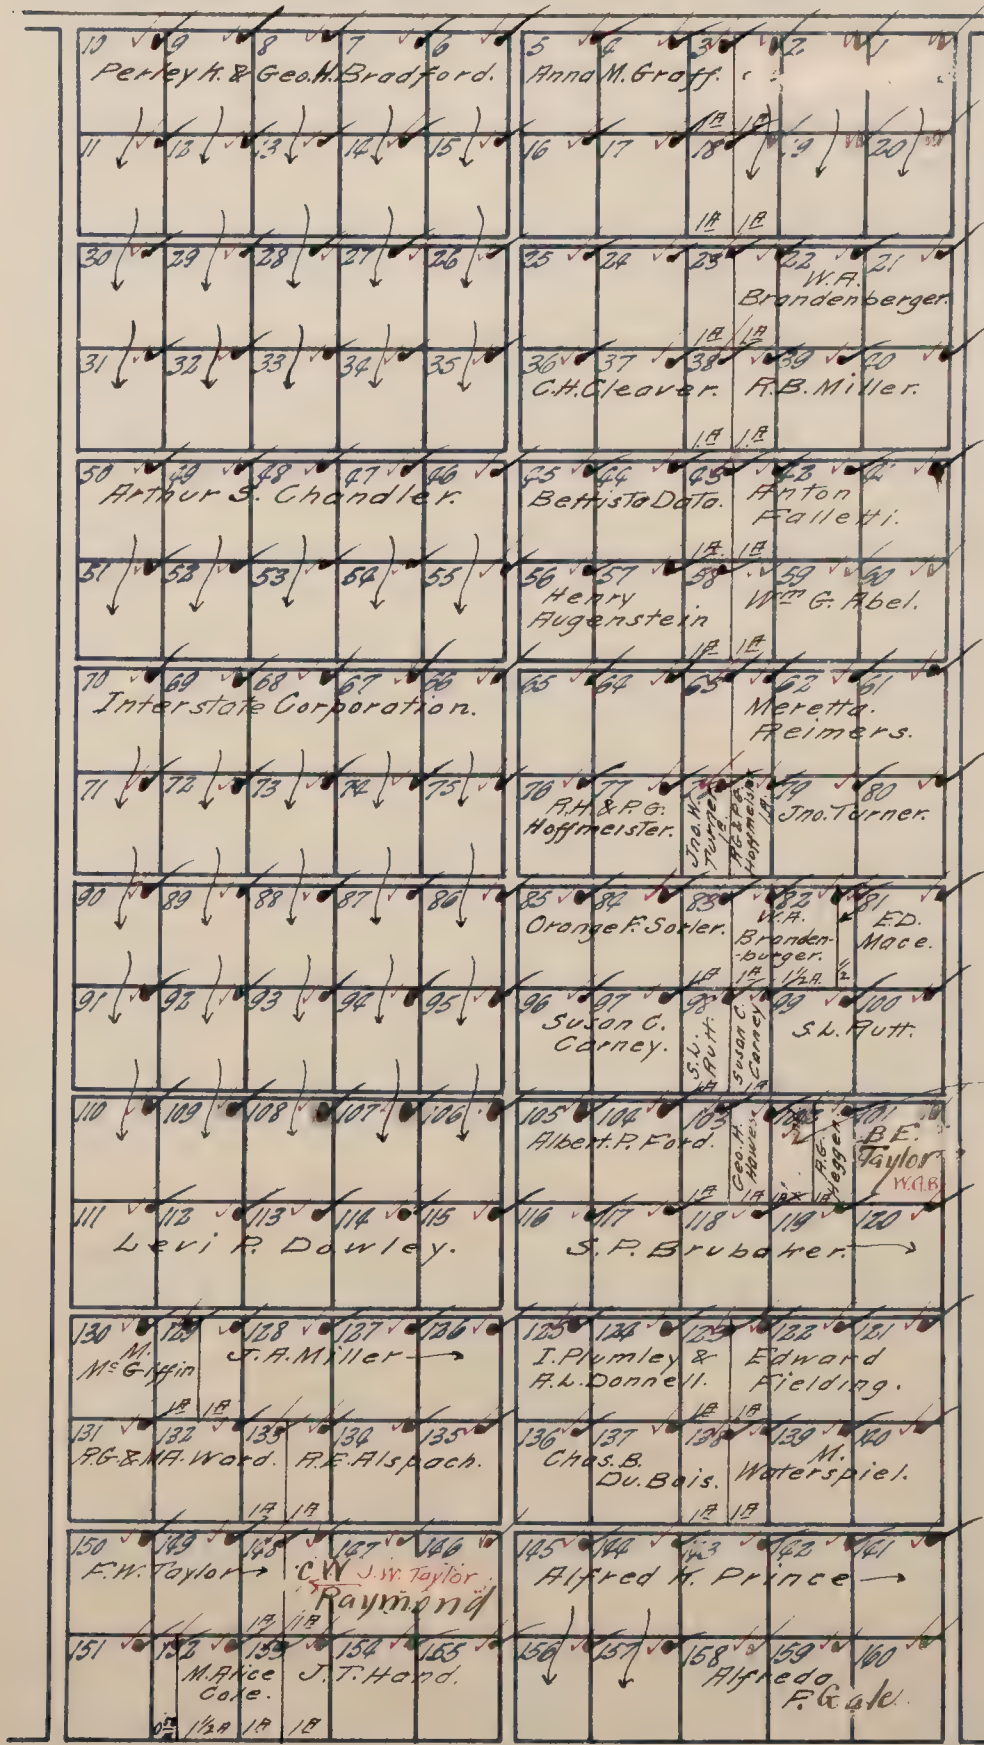 10 9 8 7 6 5 4 3 2 1
Perley K. & Geo. H. Bradford. Anna M. Graff.
1A 1A
11 12 13 14 15 16 17 18 19 20
1A 1A
30 29 28 27 26 25 24 23 22 21
W.A.
Brandenberger.
1A 1A
31 32 33 34 35 36 37 38 39 40
C.H. Cleaver. R.B. Miller.
1A 1A
50 49 48 47 46 45 44 43 42 41
Arthur S. Chandler. Bettisto Data. Anton
Falletti.
1A 1A
51 52 53 54 55 56 57 58 59 60
Henry Wm G. Abel.
Augenstein
1A 1A
70 69 68 67 66 65 64 63 62 61
Interstate Corporation. Meretta.
Reimers.
71 72 73 74 75 76 77 79 80
R.H. & R.G.
Hoffmeister. Jno. W.
Turner
Hoffmeister
1A
Jno. Turner.
90 89 88 87 86 85 84 83 82 81
Orange F. Sarler. W.A.
Branden-
-burger. E.D.
Mace.
1A 1A 1½A ½
91 92 93 94 95 96 97 98 99 100
Susan C.
Carney. S.L.
Rutt. Susan C.
Carney S.L. Rutt.
1A 1A
110 109 108 107 106 105 104 103 101
Albert. P. Ford. Geo. H.
Howe R.G.
Heggen B E.
Taylor
W.A.B
1A 1A 1A
111 112 113 114 115 116 117 118 119 120
Levi P. Dowley. S.P. Brubaker.
130 129 128 127 126 125 124 123 122 121
M.
McGiffin J.A. Miller I. Plumley &
A.L. Donnell. Edward
Fielding.
1A 1A 1A 1A
131 132 133 134 135 136 137 138 139 140
R.G. & M.A. Ward. R.E. Alspach. Chas. B.
Du. Bois. M.
Waterspiel.
1A 1A 1A 1A
150 149 148 147 146 145 144 143 142 141
F.W. Taylor CW J.W. Taylor Alfred K. Prince
Raymond
1A 1A
151 152 153 154 155 156 157 158 159 160
M. Alice
Cole. J.T. Hand. Alfredo
F. Gale.
1½A 1A 1A